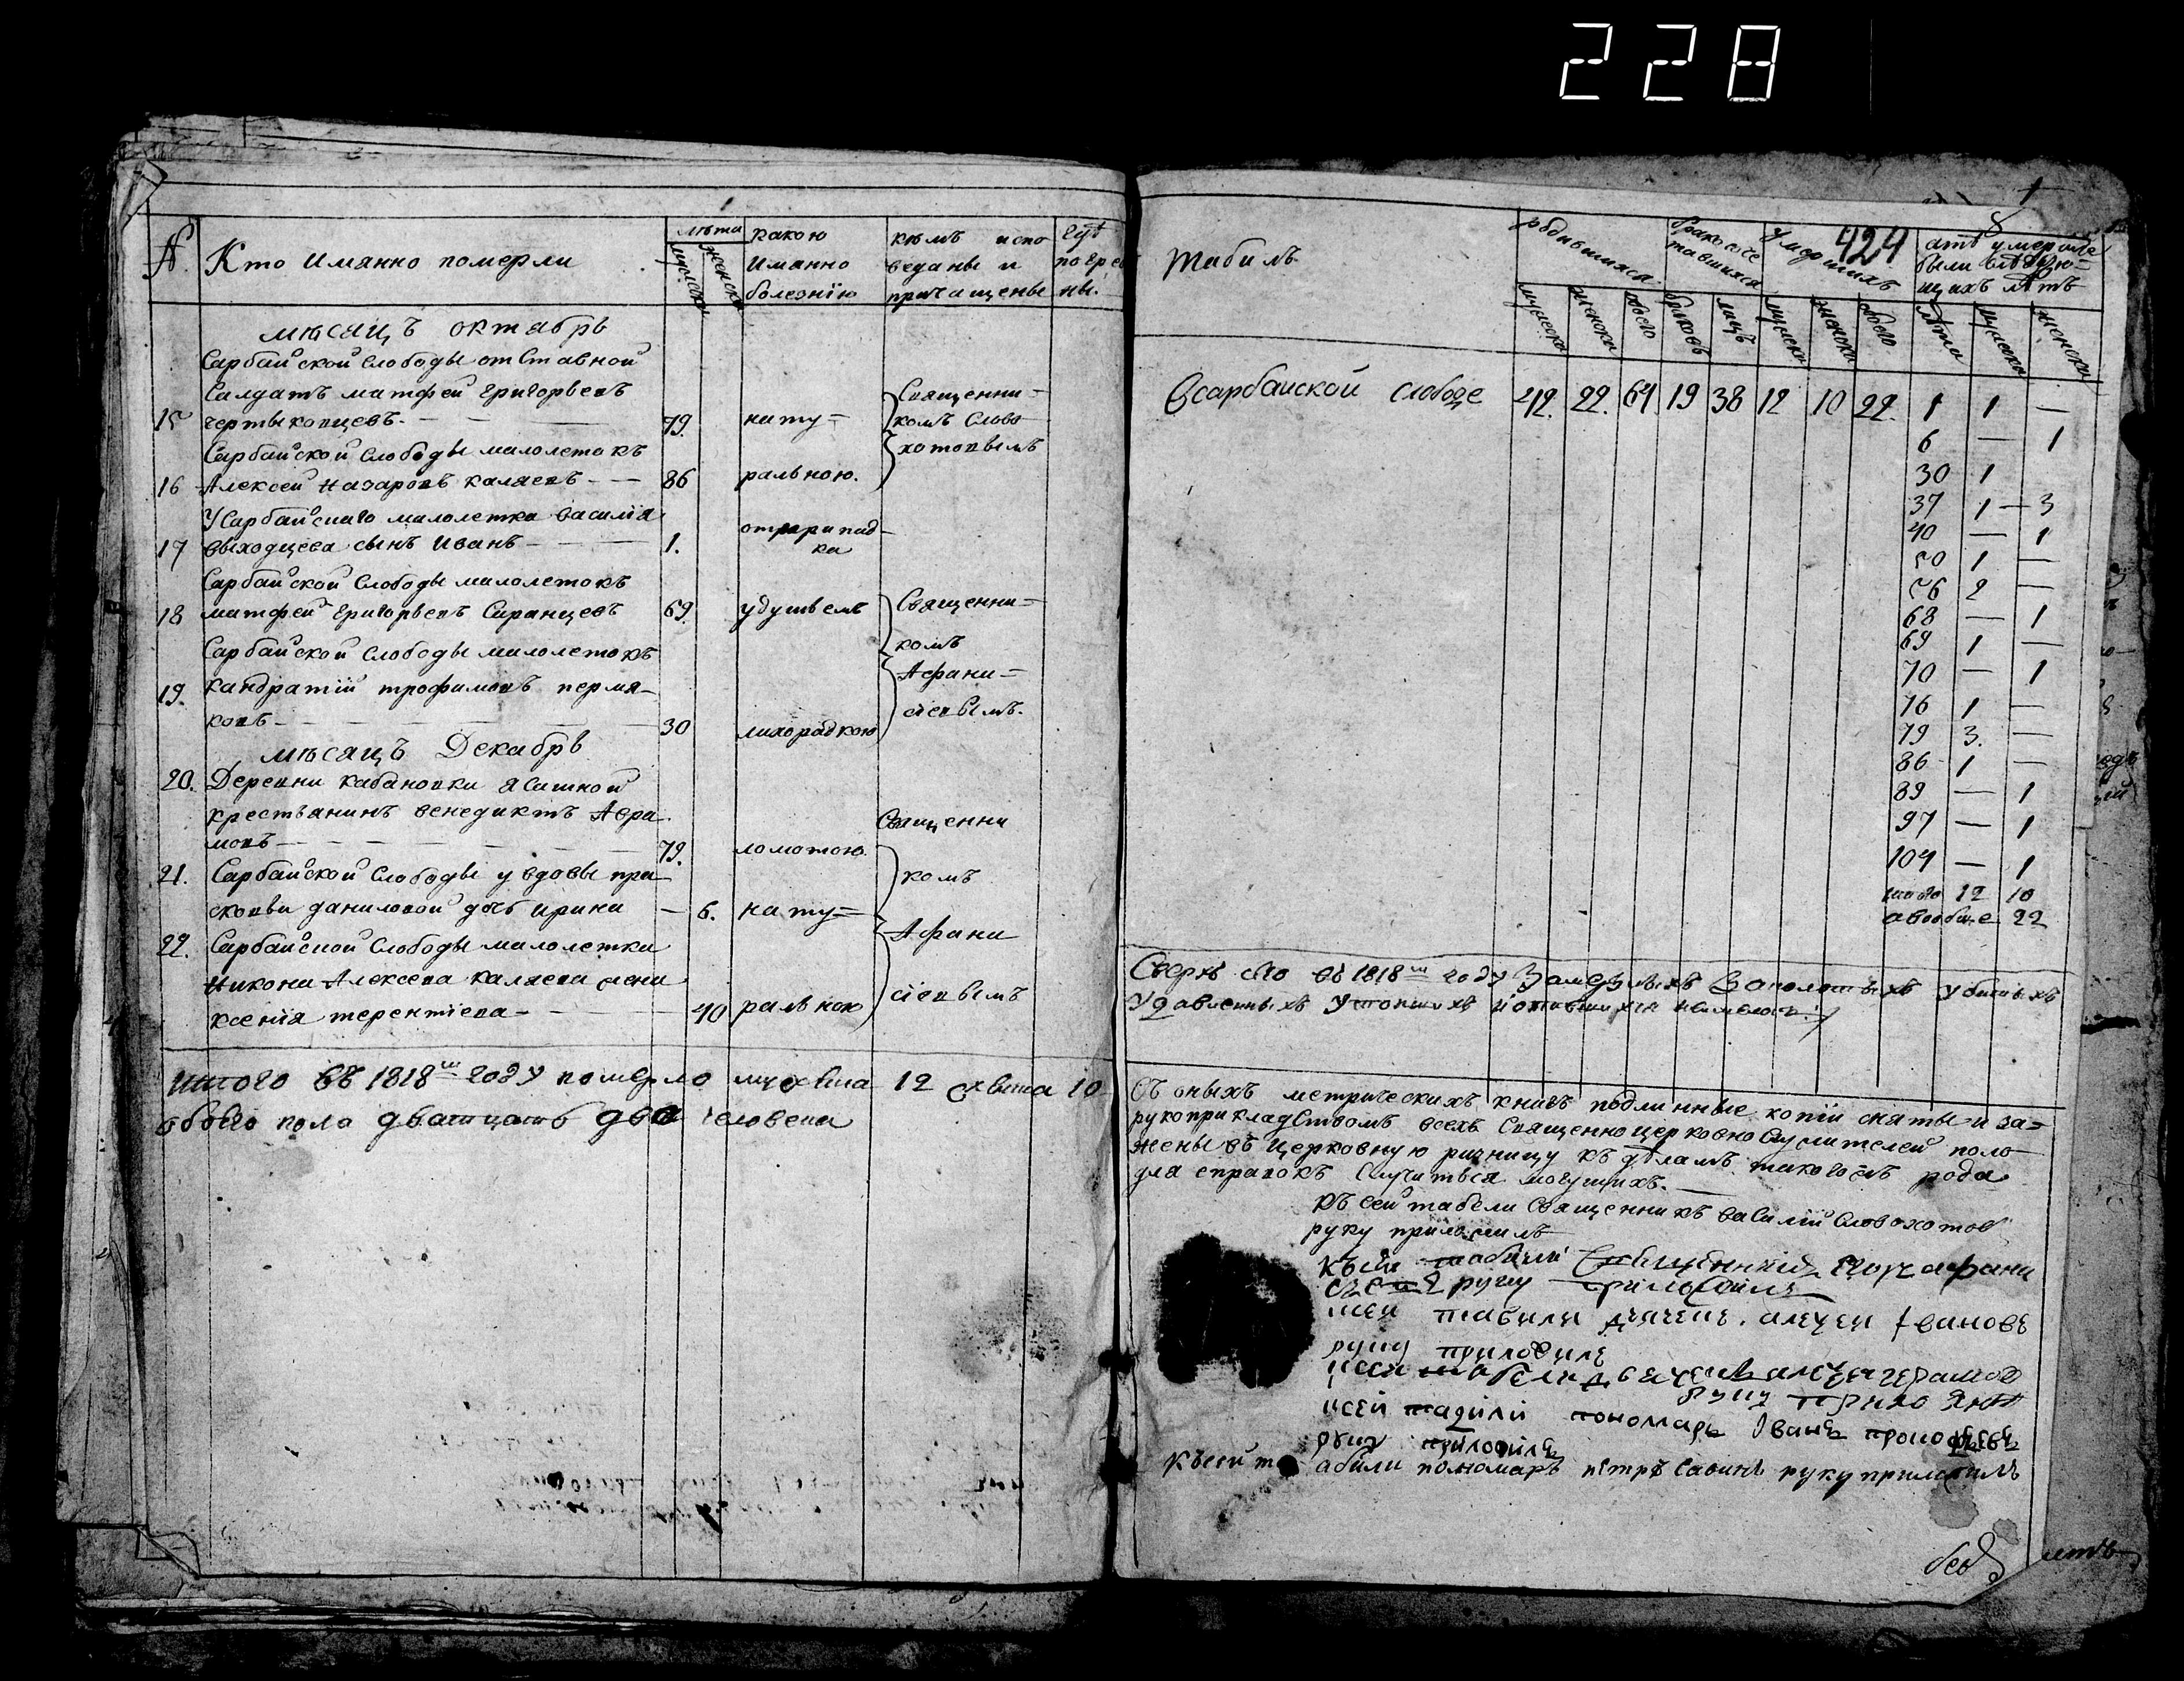 228
№
Кто Имянно померли
лѣта
мужеска
женска
какою
Имянно
болезнію
кѣмъ испо
веданы и
причащены
гдѣ
погре
ны.
мѣсяцъ октябрь
Сарбайской Слободы отставной
Салдатъ матфей Григорьевъ
15 чертыковцевъ. — — — 79. нату=
Священни=
комъ Слово
хотовымъ
Сарбайской Слободы малолетокъ
16 Алексей Назаровъ каляевъ - — 86 ральною.
У Сарбайскаго малолетка василія
17 выходцева сынъ Иванъ — — — 1. отприпад-
ка
Сарбайской Слободы малолетокъ
18 матфей Григорьевъ Саранцевъ 69. удушьемъ
Священни=
комъ
Афани=
сіевымъ.
Сарбайской Слободы малолетокъ
19. кандратій трофимовъ пермя-
ковъ — — — — 30 лихорадкою
мѣсяцъ Декабрь
20. Деревни кабановки ясашной
крестьянинъ венедиктъ Авра-
мовъ — — — — 79. ломотою.
Священни
комъ
Афана
сіевымъ
21. Сарбайской Слободы у вдовы пра-
сковьи даниловой дочь ирина — 6. нату=
22. Сарбайской Слободы малолетка
Никона Алексеева каляева жена
ксенія терентіева — — — 40 ральною
итого въ 1818м году померло мужеска 12 женска 10
обоего пола дватцать два человека
424
8
табиль
родившихся
бракосоче
тавшихся
умерших
отъ умершве
были следую=
щихъ лѣтъ
мужеска
женска
обоего
браковъ
лицъ
мужеска
женска
обоего
лѣта
мужеска
женска
Всарбайской слободе 42. 22. 64. 19 38 12 10 22. 1 1 —
6 — 1
30 1
37 1 — 3
40 — 1
50 1 —
56 2 —
68 — 1
69 1 —
70 — 1
76 1 —
79 3. —
86 1 —
89 — 1
97 — 1
104 — 1
итого 12 10
авообще 22
Сверхъ сего въ 1818м году Замерзлыхъ Заполотыхъ убитыхъ
Удавленныхъ Утопшихъ
Съ оныхъ метрическихъ книгъ подлинные копіи сняты и за=
рукоприкладствомъ всехъ Священноцерковнослужителей поло
жены въ Церковную ризницу къ дѣламъ такогожъ рода
для справокъ Случиться могущихъ. —
Къ сей табели Священникъ василій Словохотов
руку приложилъ
Къ сей табили Священникъ Афана
сиевъ руку приложилъ
ксей табили дьячекъ алекей Ивановъ
руку приложилъ
ксей табели дьячекъ алексей
руку приложилъ
ксей табили пономарь Іванъ прокофьевъ
руку приложилъ
Късей табили пономарь петръ Савинъ руку приложилъ